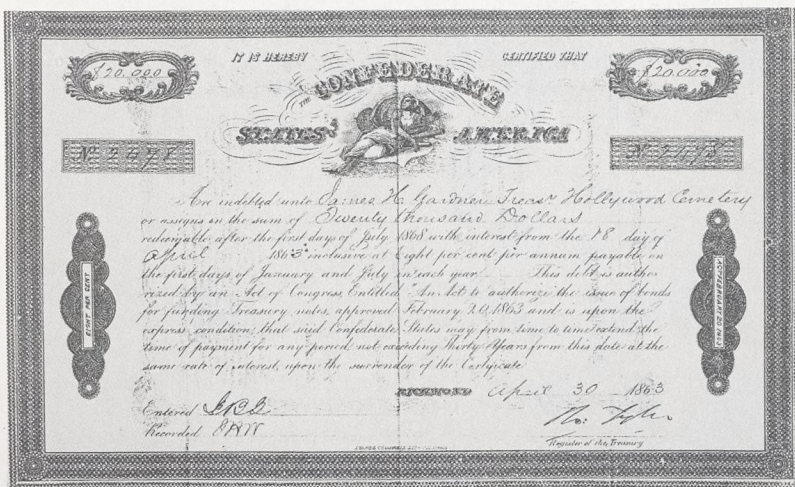 $20.000
IT IS HEREBY CERTIFIED THAT
$20.000
THE CONFEDERATE
STATES OF AMERICA
No 2478
No 2478
Are indebted unto James H. Gardner Treasr Hollywood Cemetery
or assigns in the sum of Twenty thousand Dollars
redeemable after the first days of July 1868 with interest from the 18 day of
April 1863 inclusive at Eight per cent per annum payable on
the first days of January and July in each year This debt is autho-
rized by an Act of Congress, Entitled "An Act to authorize the issue of bonds
for funding Treasury notes, approved February 20, 1863 and is upon the
express condition that said Confederate States may from time to time extend the
time of payment for any period, not exceeding Thirty Years from this date at the
same rate of interest, upon the surrender of the Certificate
EIGHT PER CENT
ACT FEBRUARY 20 1863
RICHMOND April 30 1863
Entered
Recorded
Ro: Tyler
Register of the Treasury